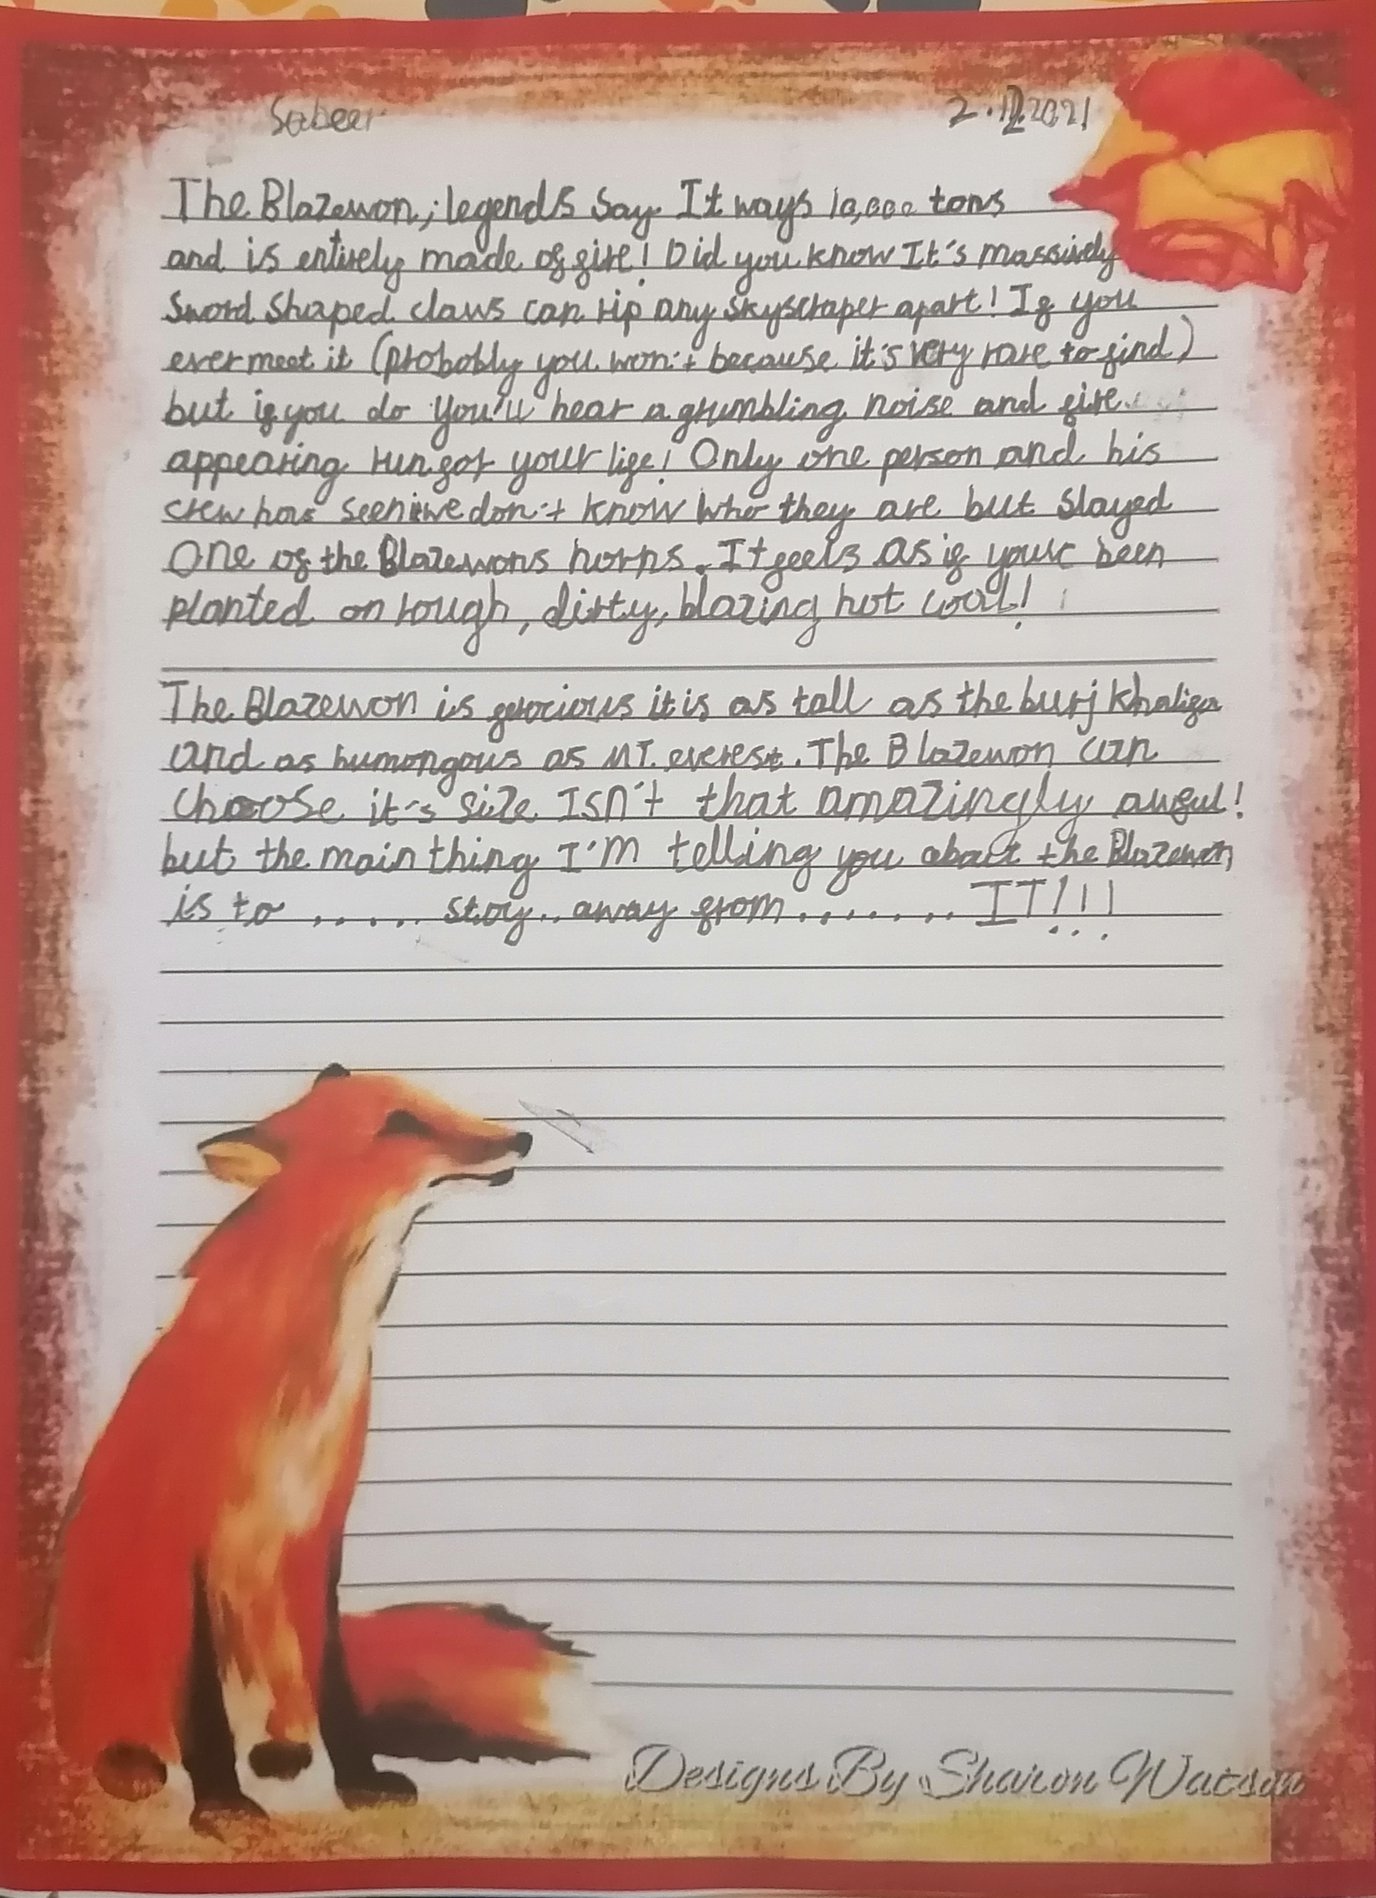 Sabeer 2.12.2021
The Blazewon, legends say It ways 10,000 tons
and is entirely made of fire! Did you know It's massively
Sword Shaped claws can rip any skyscraper apart! If you
ever meet it (probobly you won't because it's very rare to find)
but if you do you'll hear a grumbling noise and fire
appearing run for your life! Only one person and his
crew has seen we don't know who they are but Slayed
One of the Blazewons horns. It feels as if your been
planted on rough, dirty, blazing hot coal!
The Blazewon is ferocious it is as tall as the burj khalifa
and as humongous as MT. everest. The Blazewon can
choose it's size Isn't that amazingly awful!
but the main thing I'm telling you about the Blazewon
is to ...... stay.. away from ....... IT!!!
Designs By Sharon Watson